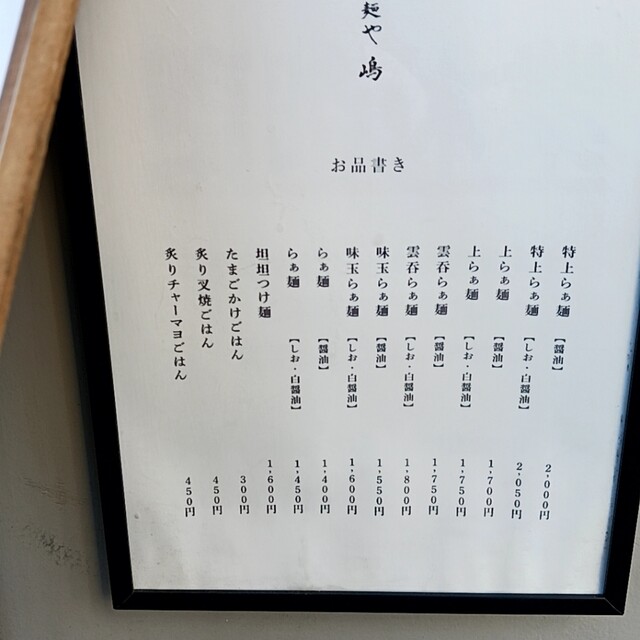 麺や 嶋
お品書き
特上らぁ麺 【醤油】 2,000円
特上らぁ麺 【しお・白醤油】 2,050円
上らぁ麺 【醤油】 1,700円
上らぁ麺 【しお・白醤油】 1,750円
雲呑らぁ麺 【醤油】 1,750円
雲呑らぁ麺 【しお・白醤油】 1,800円
味玉らぁ麺 【醤油】 1,550円
味玉らぁ麺 【しお・白醤油】 1,600円
らぁ麺 【醤油】 1,400円
らぁ麺 【しお・白醤油】 1,450円
坦坦つけ麺 1,600円
たまごかけごはん 300円
炙り叉焼ごはん 450円
炙りチャーマヨごはん 450円